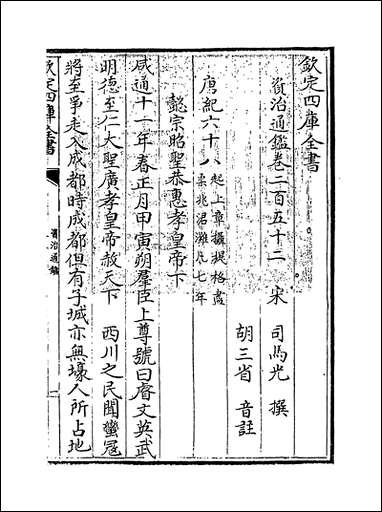 欽定四庫全書
資治通鑑卷二百五十二
宋 司馬光 撰
胡三省 音註
唐紀六十八
起上章攝提格盡
柔兆涒灘凡七年
懿宗昭聖恭惠孝皇帝下
咸通十一年春正月甲寅朔羣臣上尊號曰睿文英武
明德至仁大聖廣孝皇帝赦天下 西川之民聞蠻寇
將至爭走入成都時成都但有子城亦無壕人所占地
欽定四庫全書
資治通鑑